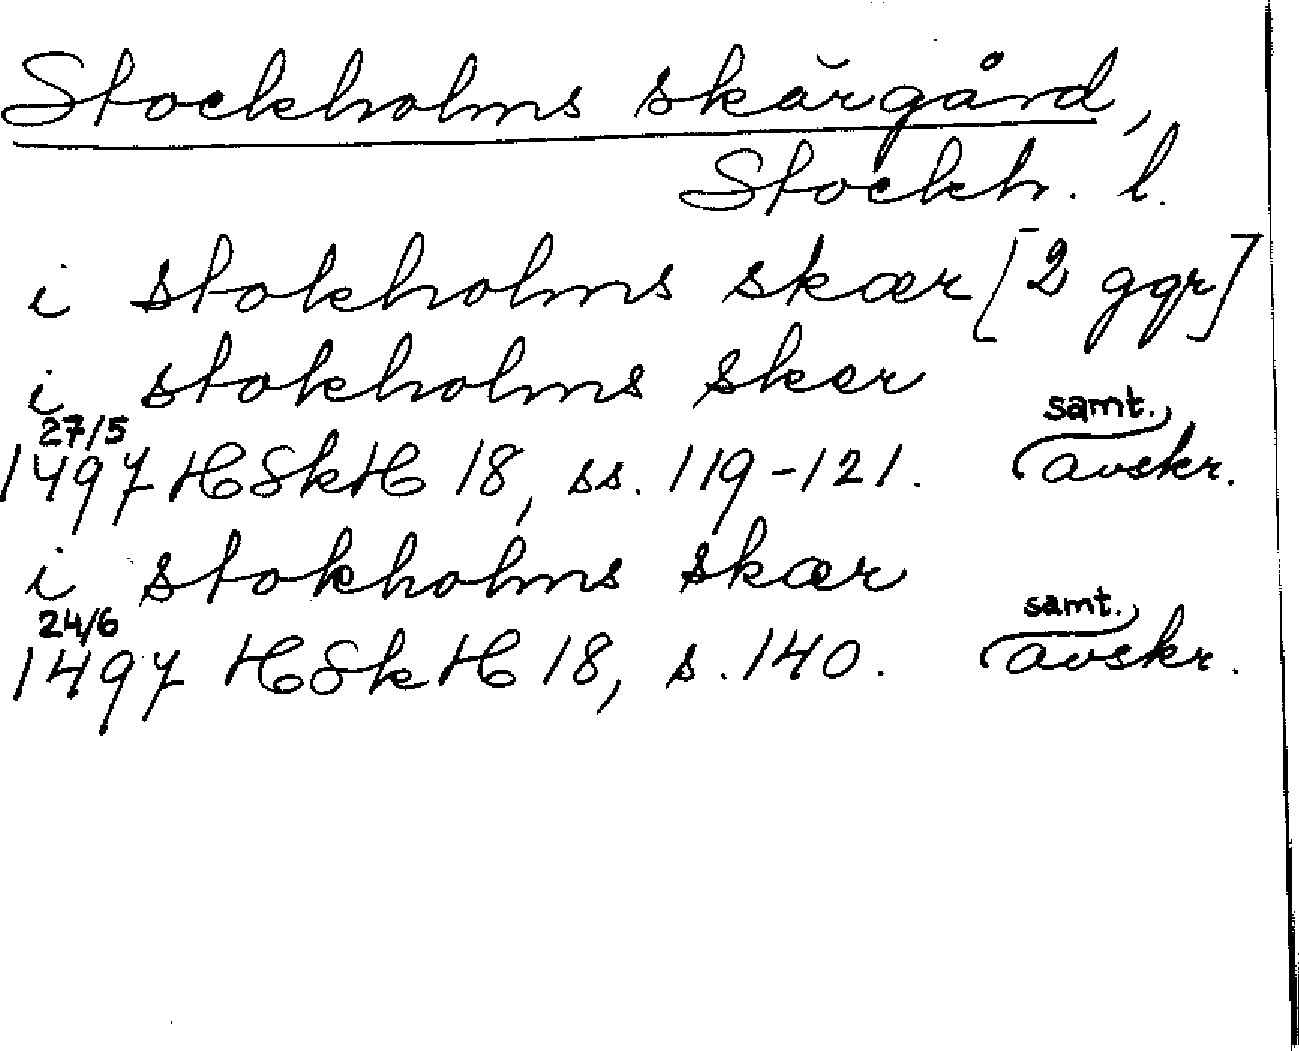 Stockholms skärgård,
Stockh. l.
i stokholms skær [2 ggr]
i stokholms sker
27/5 samt.
1497 HSkH 18, ss. 119-121. avskr.
i stokholms skær
24/6 samt.
1497 HSkH 18, s. 140. avskr.